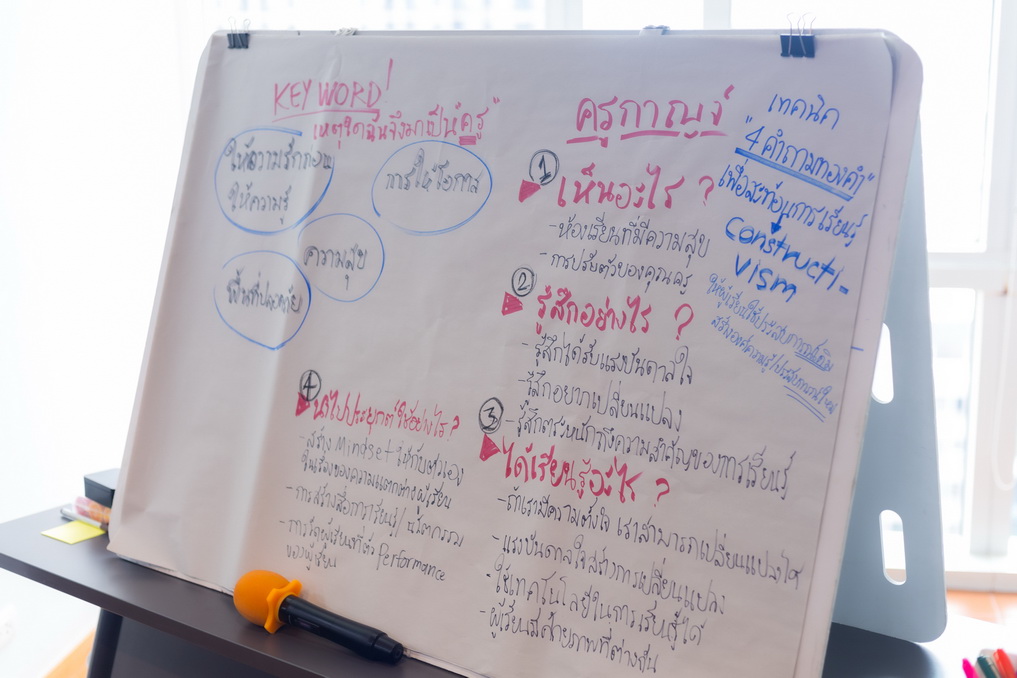 KEY WORD!
เหตุใดฉันจึงมาเป็น"ครู"
ให้ความรักก่อน
ให้ความรู้
การให้โอกาส
ความสุข
พื้นที่ปลอดภัย
ครูกาญจ์
① เห็นอะไร ?
- ห้องเรียนที่มีความสุข
- การปรับตัวของคุณครู
② รู้สึกอย่างไร ?
- รู้สึกได้รับแรงบันดาลใจ
- รู้สึกอยากเปลี่ยนแปลง
- รู้สึกตระหนักถึงความสำคัญของการเรียนรู้
③ ได้เรียนรู้อะไร ?
- ถ้าเรามีความตั้งใจ เราสามารถเปลี่ยนแปลงได้
- แรงบันดาลใจสร้างการเปลี่ยนแปลง
- ใช้เทคโนโลยีในการเรียนรู้ได้
- ผู้เรียนมีศักยภาพที่ต่างกัน
④ นำไปประยุกต์ใช้อย่างไร ?
- สร้าง Mindset ให้กับตัวเอง
ในเรื่องของความแตกต่างผู้เรียน
- การสร้างสื่อการเรียนรู้/นวัตกรรม
- การวัดผู้เรียนที่ตัว Performance
ของผู้เรียน
เทคนิค
"4 คำถามทองคำ"
เพื่อสะท้อนการเรียนรู้
Constructi-
vism
ให้ผู้เรียนใช้ประสบการณ์เดิม
สร้างองค์ความรู้/ประสบการณ์ใหม่